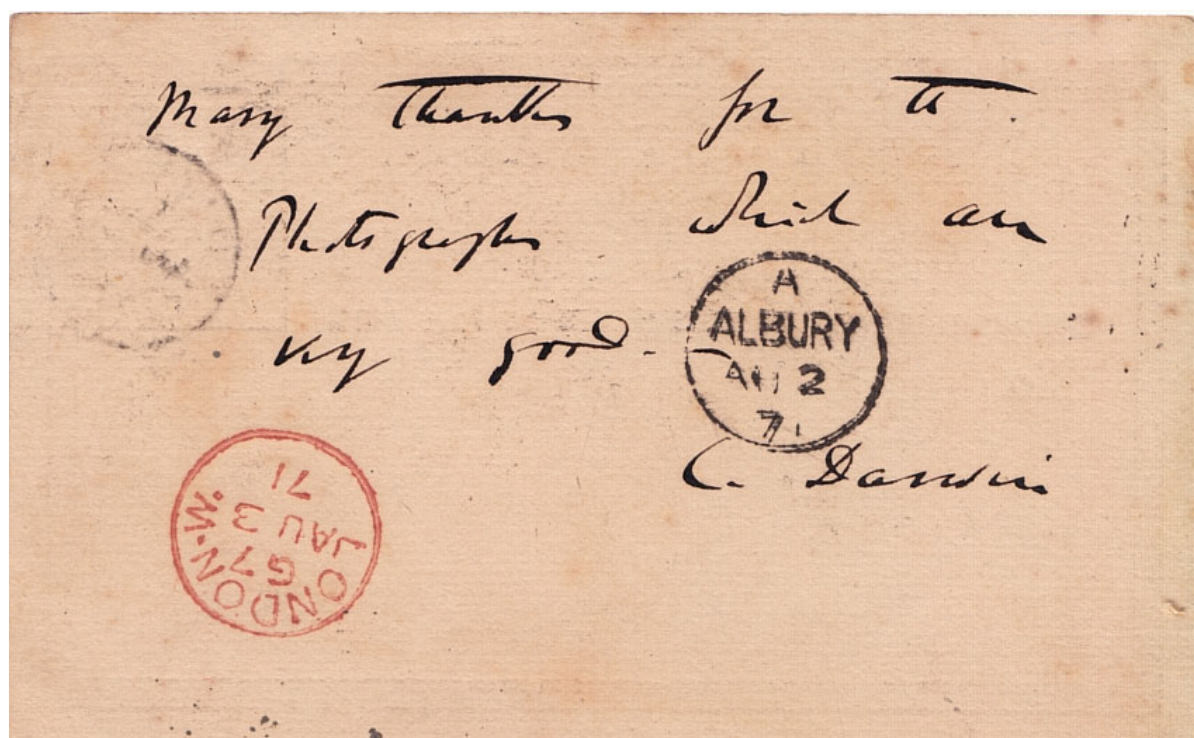 Many thanks for the
Photographs which are
very good. —
C. Darwin
A
ALBURY
AU 2
71
LONDON·W.
G7
AU 3
71